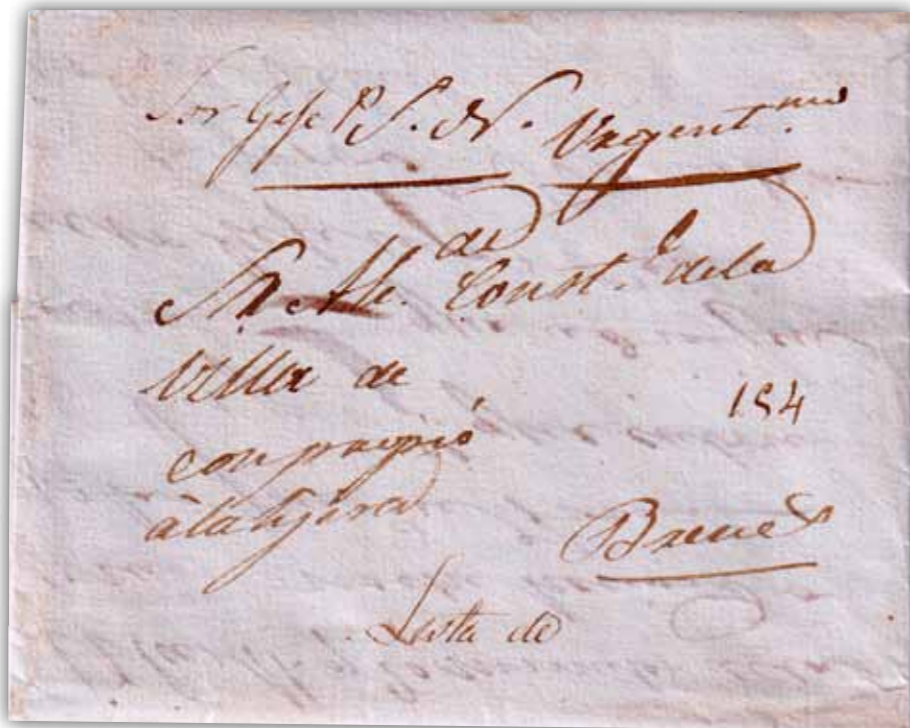 Por Gefe P. S. N. Urgent.mo
de
Sr. Alc. Const.l de la
Villa de
con propio
à la ligera
154
Brenes
Lista de